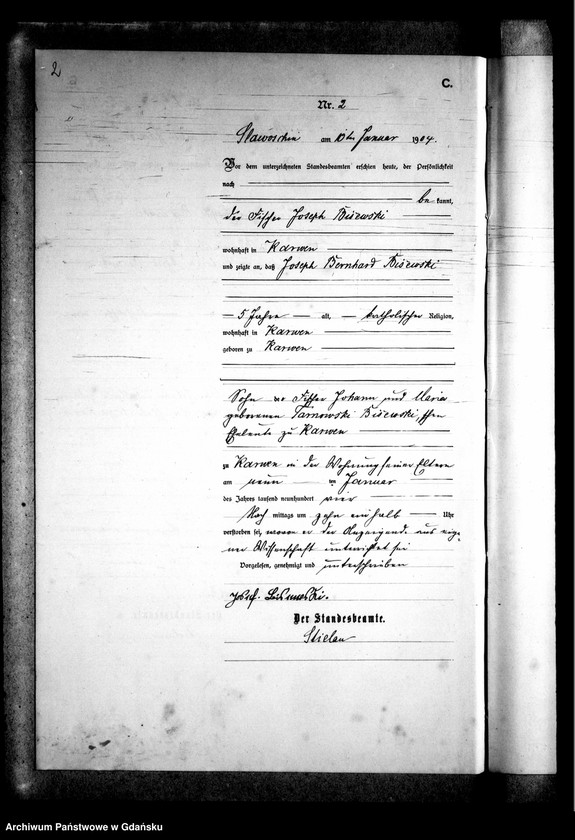 2
C.
Nr. 2
Slawoschin am 10ten Januar 1904.
Vor dem unterzeichneten Standesbeamten erschien heute, der Persönlichkeit
nach
be kannt,
der Fischer Joseph Bisewski
wohnhaft in Karwen
und zeigte an, daß Joseph Bernhard Bisewski
5 Jahre alt, katholischer Religion,
wohnhaft in Karwen
geboren zu Karwen
Sohn der Fischer Johann und Maria
geborenen Tarnowski Bisewski'schen
Eheleute zu Karwen
zu Karwen in der Wohnung seiner Eltern
am neun ten Januar
des Jahrs tausend neunhundert vier
Nach mittags um zehn ein halb Uhr
verstorben sei, wovon er der Anzeigende aus eige-
ner Wissenschaft unterrichtet sei
Vorgelesen, genehmigt und unterschrieben
Josef
Der Standesbeamte.
Archiwum Państwowe w Gdańsku